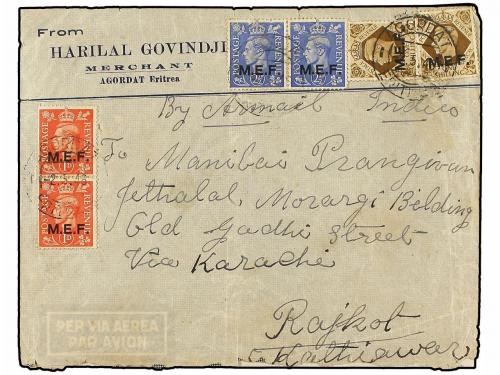 From
HARILAL GOVINDJI
MERCHANT
AGORDAT Eritrea
POSTAGE REVENUE
M.E.F.
POSTAGE REVENUE
M.E.F.
M.E.F.
M.E.F.
By Airmail Indica
POSTAGE REVENUE
M.E.F.
POSTAGE REVENUE
M.E.F.
To Manibai Prangivan
Jethalal, Morargi Belding
Old Gadhi Street
Via Karachi
Rajkot
Kathiawar
PER VIA AEREA
PAR AVION